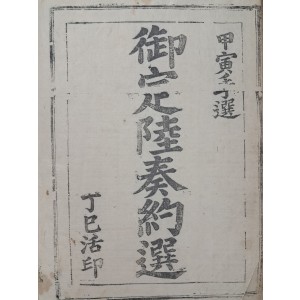 甲寅手選
御定陸奏約選
丁巳活印